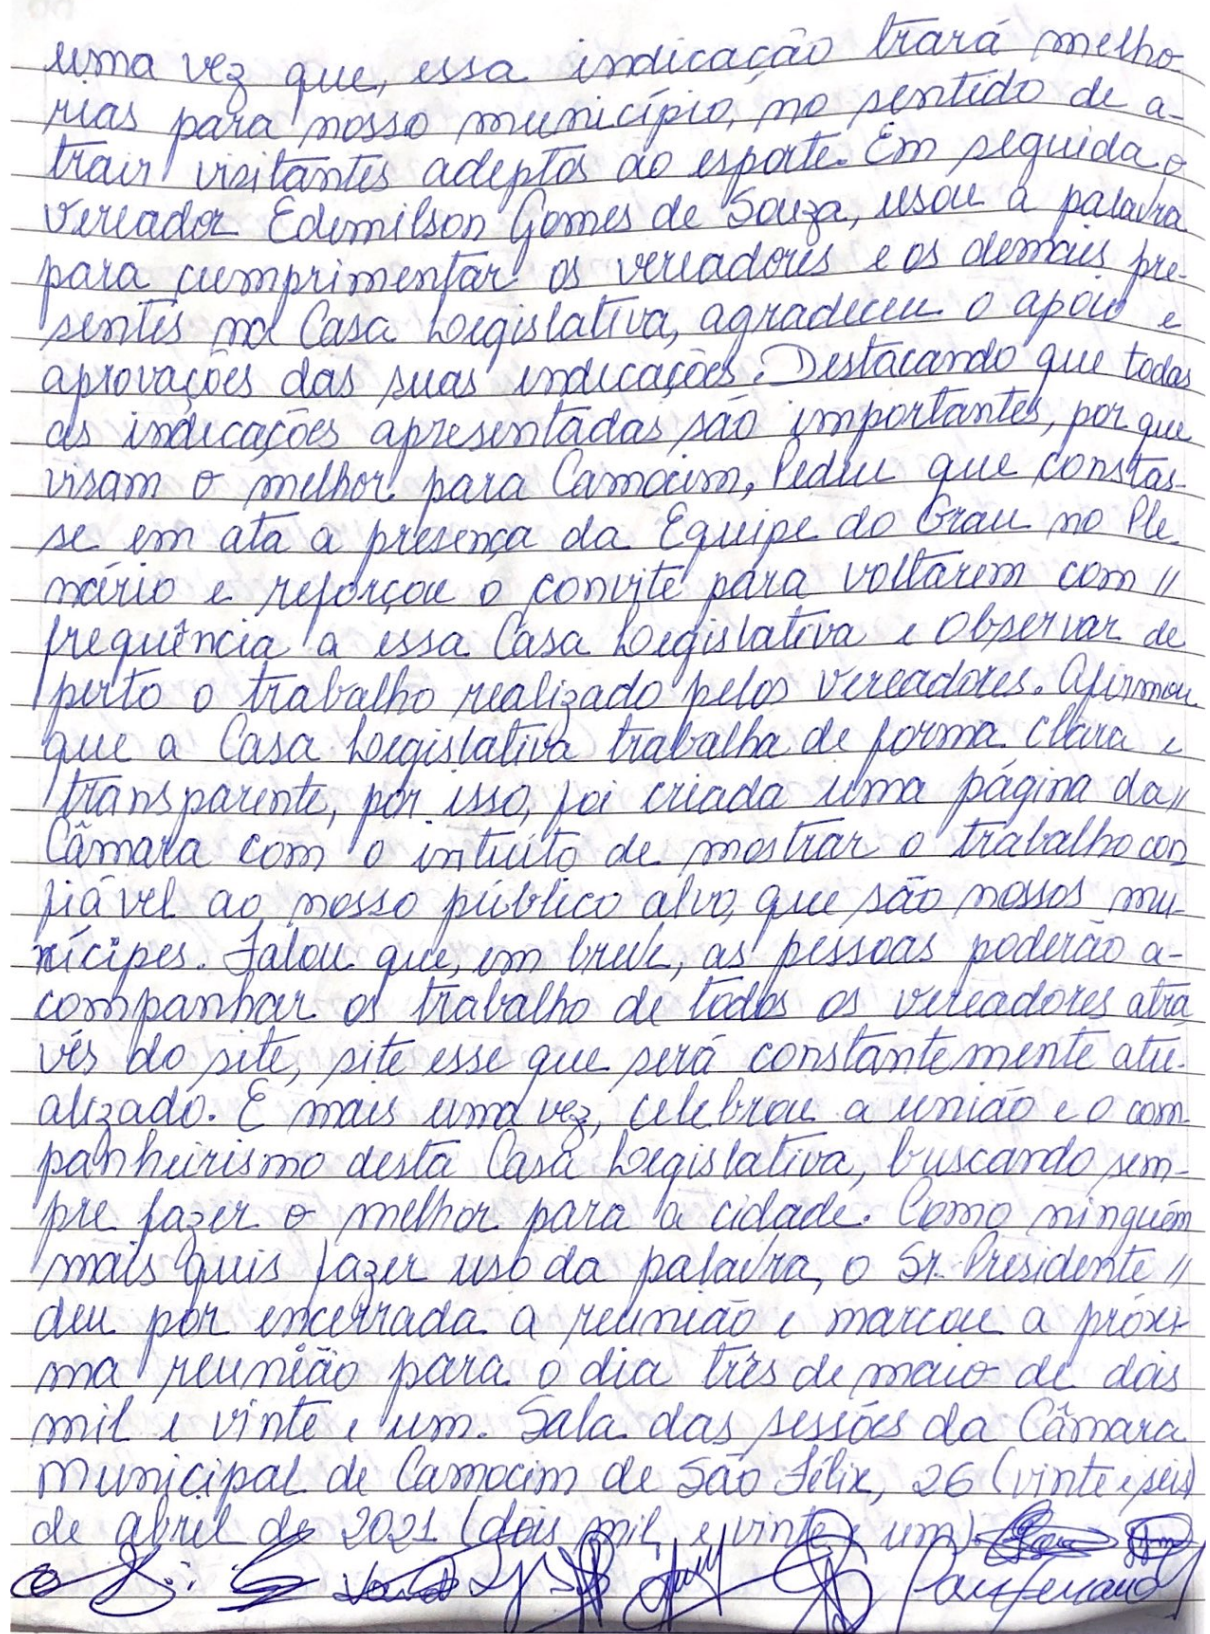 uma vez que, essa indicação trará melho-
rias para nosso município, no sentido de a-
trair visitantes adeptos ao esporte. Em seguida o
vereador Edemilson Gomes de Souza, usou a palavra
para cumprimentar os vereadores e os demais pre-
sentes na Casa Legislativa, agradeceu o apoio e
aprovações das suas indicações. Destacando que todas
as indicações apresentadas são importantes, por que
visam o melhor para Camocim, Pediu que constas-
se em ata a presença da Equipe do Grau no Ple-
nário e reforçou o convite para voltarem com //
frequência a essa Casa Legislativa e observar de
perto o trabalho realizado pelos vereadores. Afirmou
que a Casa Legislativa trabalha de forma clara e
transparente, por isso, foi criada uma página da //
Câmara com o intuito de mostrar o trabalho con
fiável ao nosso público alvo, que são nossos mu-
nícipes. Falou que, em breve, as pessoas poderão a-
companhar os trabalho de todos os vereadores atra
vés do site, site esse que será constantemente atu-
alizado. E mais uma vez, celebrou a união e o com-
panheirismo desta Casa Legislativa, buscando sem-
pre fazer o melhor para a cidade. Como ninguém
mais quis fazer uso da palavra, o Sr. Presidente //
deu por encerrada a reunião e marcou a próxi-
ma reunião para o dia três de maio de dois
mil e vinte e um. Sala das sessões da Câmara
Municipal de Camocim de São Félix, 26 (vinte e seis)
de abril de 2021 (dois mil e vinte e um)